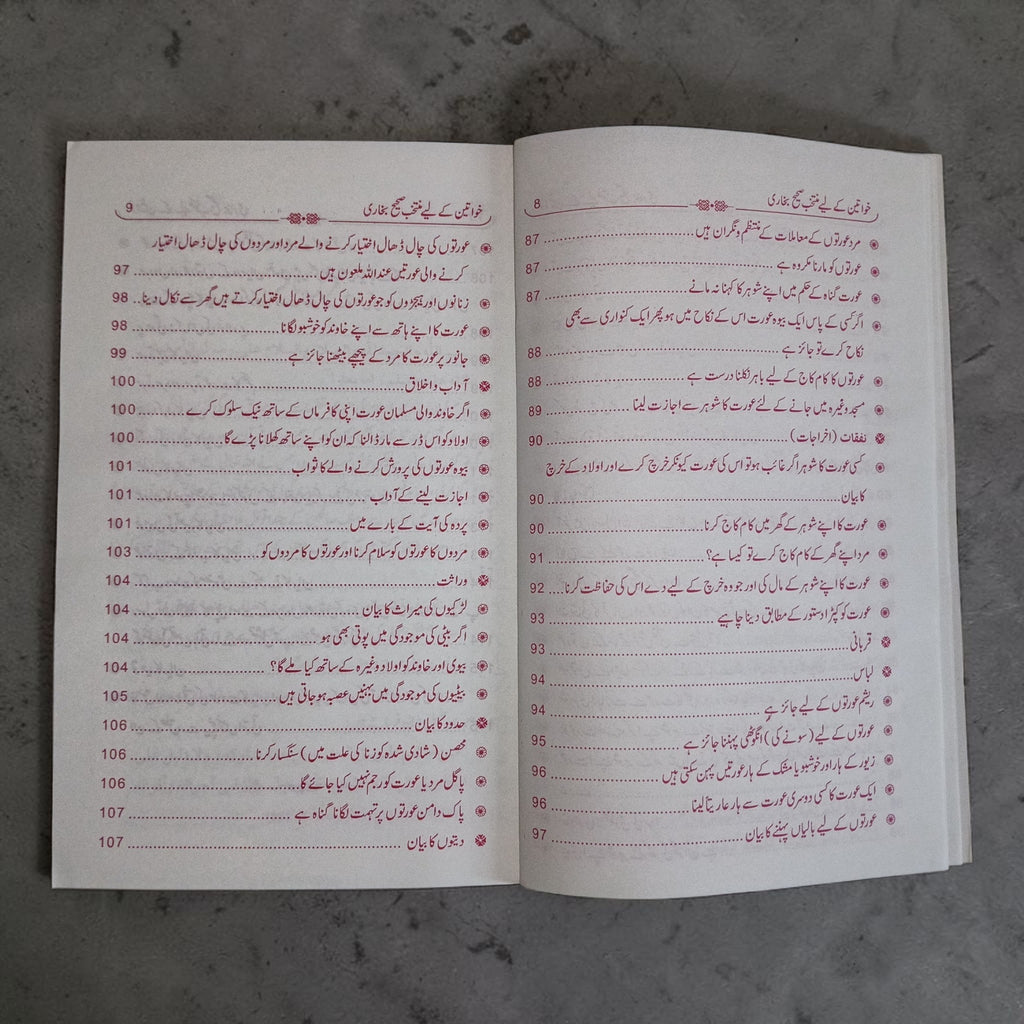 8 خواتین کے لیے منتخب صحیح بخاری
مرد عورتوں کے معاملات کے منتظم و نگران ہیں ........ 87
عورتوں کو مارنا مکروہ ہے ........ 87
عورت گناہ کے حکم میں اپنے شوہر کا کہنا نہ مانے ........ 87
اگر کسی کے پاس ایک بیوہ عورت اس کے نکاح میں ہو پھر ایک کنواری سے بھی
نکاح کرے تو جائز ہے ........ 88
عورتوں کا کام کاج کے لیے باہر نکلنا درست ہے ........ 88
مسجد وغیرہ میں جانے کے لئے عورت کا شوہر سے اجازت لینا ........ 89
نفقات (اخراجات) ........ 90
کسی عورت کا شوہر اگر غائب ہو تو اس کی عورت کیونکر خرچ کرے اور اولاد کے خرچ
کا بیان ........ 90
عورت کا اپنے شوہر کے گھر میں کام کاج کرنا ........ 90
مرد اپنے گھر کے کام کاج کرے تو کیسا ہے؟ ........ 91
عورت کا اپنے شوہر کے مال کی اور جو وہ خرچ کے لیے دے اس کی حفاظت کرنا .... 92
عورت کو کپڑا دستور کے مطابق دینا چاہیے ........ 93
قربانی ........ 93
لباس ........ 94
ریشم عورتوں کے لیے جائز ہے ........ 94
عورتوں کے لیے (سونے کی) انگوٹھی پہننا جائز ہے ........ 95
زیور کے ہار اور خوشبو یا مشک کے ہار عورتیں پہن سکتی ہیں ........ 96
ایک عورت کا کسی دوسری عورت سے ہار عاریتا لینا ........ 96
عورتوں کے لیے بالیاں پہننے کا بیان ........ 97
9 خواتین کے لیے منتخب صحیح بخاری
عورتوں کی چال ڈھال اختیار کرنے والے مرد اور مردوں کی چال ڈھال اختیار
کرنے والی عورتیں عند اللہ ملعون ہیں ........ 97
زنانوں اور ہیجڑوں کو جو عورتوں کی چال ڈھال اختیار کرتے ہیں گھر سے نکال دینا .. 98
عورت کا اپنے ہاتھ سے اپنے خاوند کو خوشبو لگانا ........ 98
جانور پر عورت کا مرد کے پیچھے بیٹھنا جائز ہے ........ 99
آداب و اخلاق ........ 100
اگر خاوند والی مسلمان عورت اپنی کافر ماں کے ساتھ نیک سلوک کرے ........ 100
اولاد کو اس ڈر سے مار ڈالنا کہ ان کو اپنے ساتھ کھلانا پڑے گا ........ 100
بیوہ عورتوں کی پرورش کرنے والے کا ثواب ........ 101
اجازت لینے کے آداب ........ 101
پردہ کی آیت کے بارے میں ........ 101
مردوں کا عورتوں کو سلام کرنا اور عورتوں کا مردوں کو ........ 103
وراثت ........ 104
لڑکیوں کی میراث کا بیان ........ 104
اگر بیٹی کی موجودگی میں پوتی بھی ہو ........ 104
بیوی اور خاوند کو اولاد وغیرہ کے ساتھ کیا ملے گا؟ ........ 104
بیٹیوں کی موجودگی میں بہنیں عصبہ ہو جاتی ہیں ........ 105
حدود کا بیان ........ 106
محصن (شادی شدہ کو زنا کی علت میں) سنگسار کرنا ........ 106
پاگل مرد یا عورت کو رجم نہیں کیا جائے گا ........ 106
پاک دامن عورتوں پر تہمت لگانا گناہ ہے ........ 107
دیتوں کا بیان ........ 107